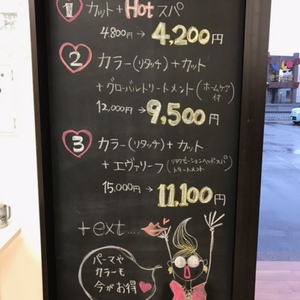 1 カット + Hot スパ
4800円 → 4,200円
2 カラー(リタッチ) + カット
+ グローバルトリートメント(ホームケア付
12,000円 → 9,500円
3 カラー(リタッチ) + カット
+ エヴァリーフ(リラクゼーションヘッドスパ
トリートメント
15,000円 → 11,100円
+ext....
パーマや
カラーも
今がお得